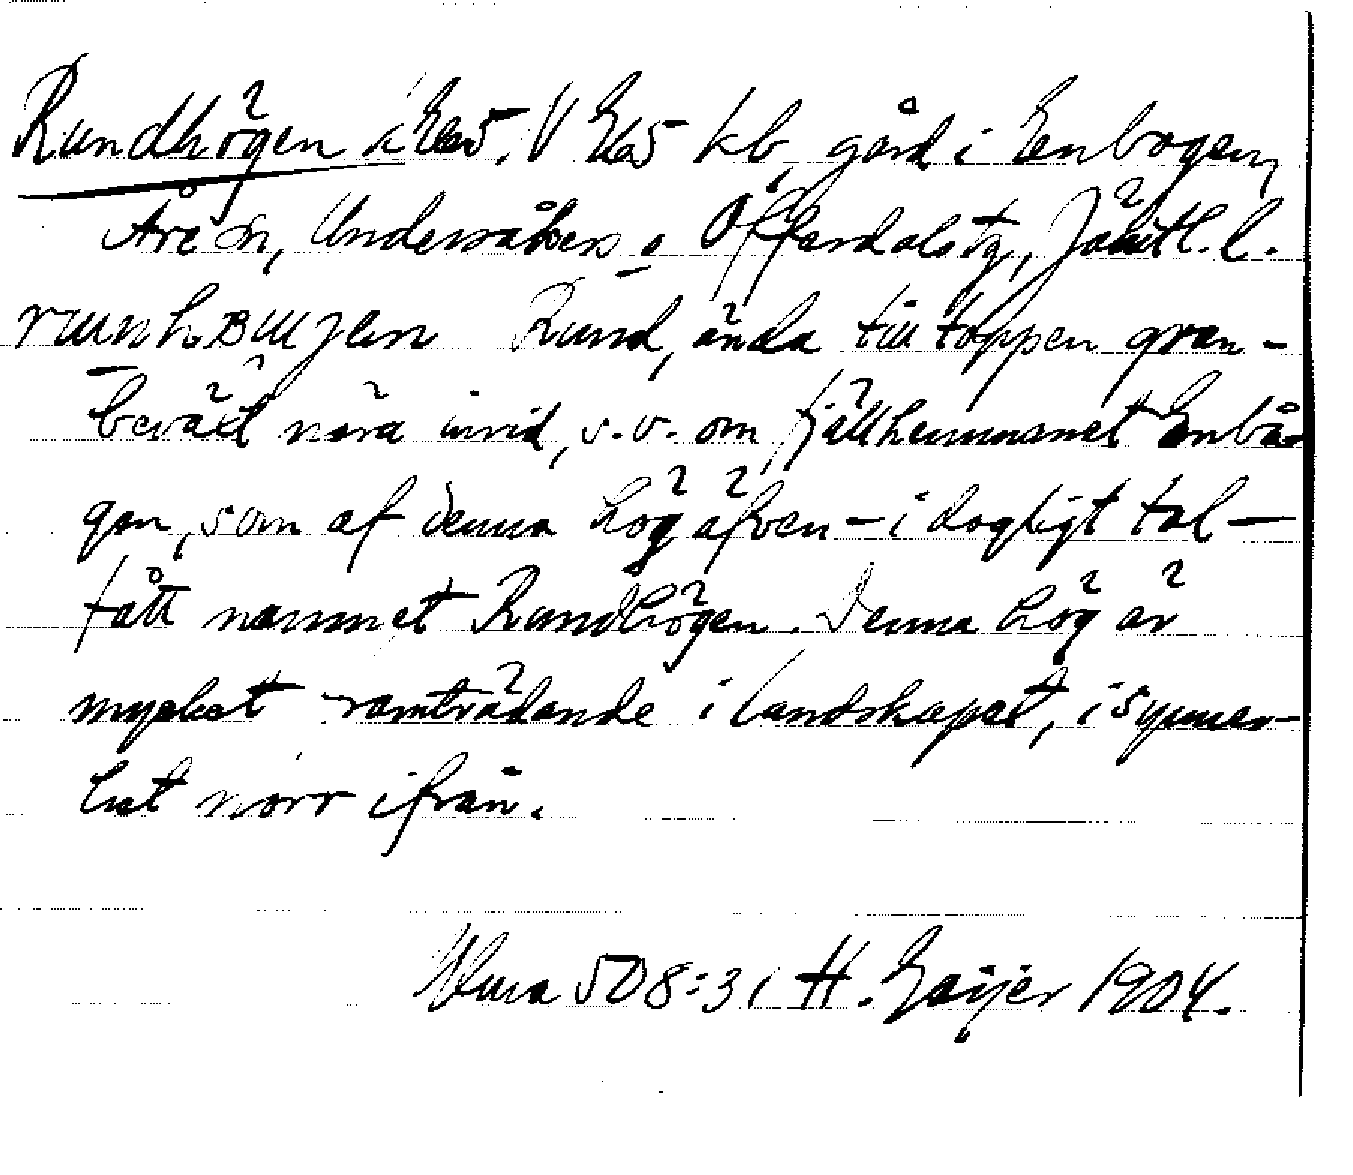 Rundhögen i Ek5. V Ek5 kb, gård i Enbogen,
Åre sn, Undersåkers o Offerdals tg, Jämtl. l.
Rund, ända till toppen gran-
beväxt nära invid, s.v. om fjällhemmanet Enbå-
gen, som af denna hög äfven - i dagligt tal -
fått namnet Rundhögen. Denna hög är
mycket framträdande i landskapet, i synner-
het norr ifrån.
508:31 H. Geijer 1904.